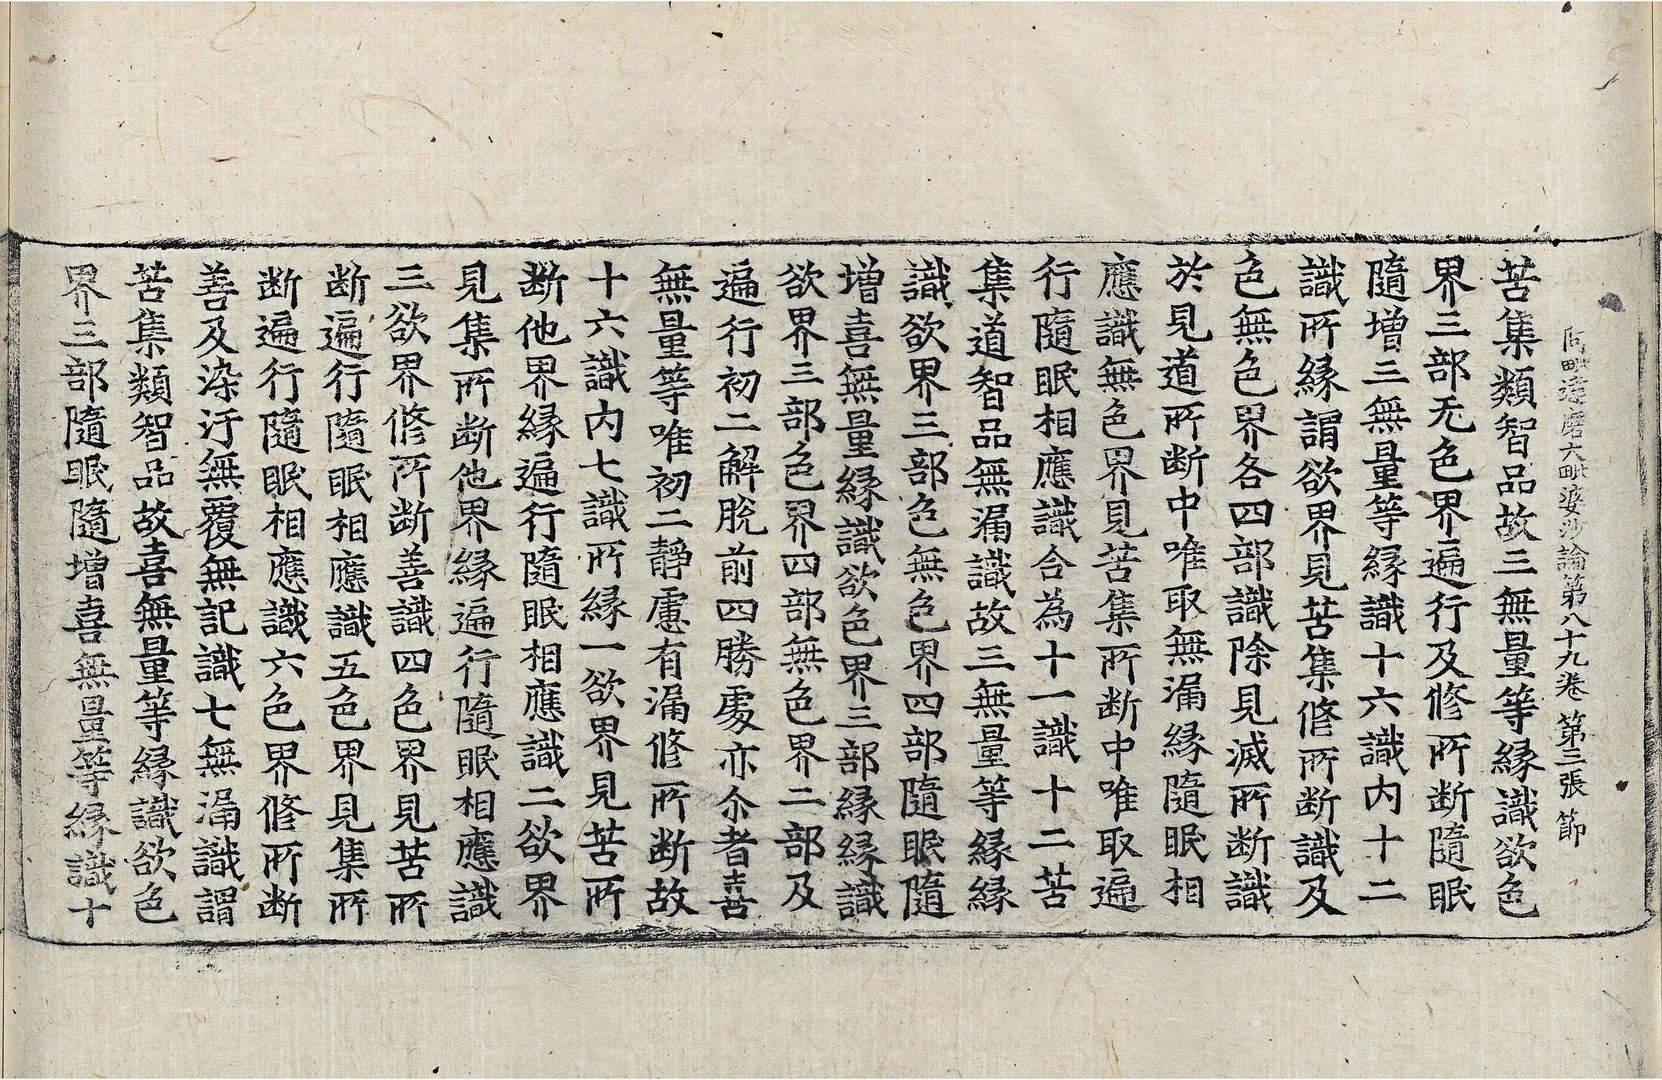 阿毗達磨大毗婆沙論第八十九卷 第三張 節
苦集類智品故三無量等緣識欲色
界三部无色界遍行及修所断隨眠
隨增三無量等緣識十六識内十二
識所緣謂欲界見苦集修所断識及
色無色界各四部識除見滅所断識
於見道所断中唯取無漏緣隨眠相
應識無色界見苦集所断中唯取遍
行隨眠相應識合為十一識十二苦
集道智品無漏識故三無量等緣緣
識欲界三部色無色界四部隨眠隨
增喜無量緣識欲色界三部緣緣識
欲界三部色界四部無色界二部及
遍行初二解脫前四勝處亦尒者喜
無量等唯初二靜慮有漏修所断故
十六識内七識所緣一欲界見苦所
断他界緣遍行隨眠相應識二欲界
見集所断他界緣遍行隨眠相應識
三欲界修所断善識四色界見苦所
断遍行隨眠相應識五色界見集所
断遍行隨眠相應識六色界修所断
善及染汙無覆無記識七無漏識謂
苦集類智品故喜無量等緣識欲色
界三部隨眠隨增喜無量等緣識十